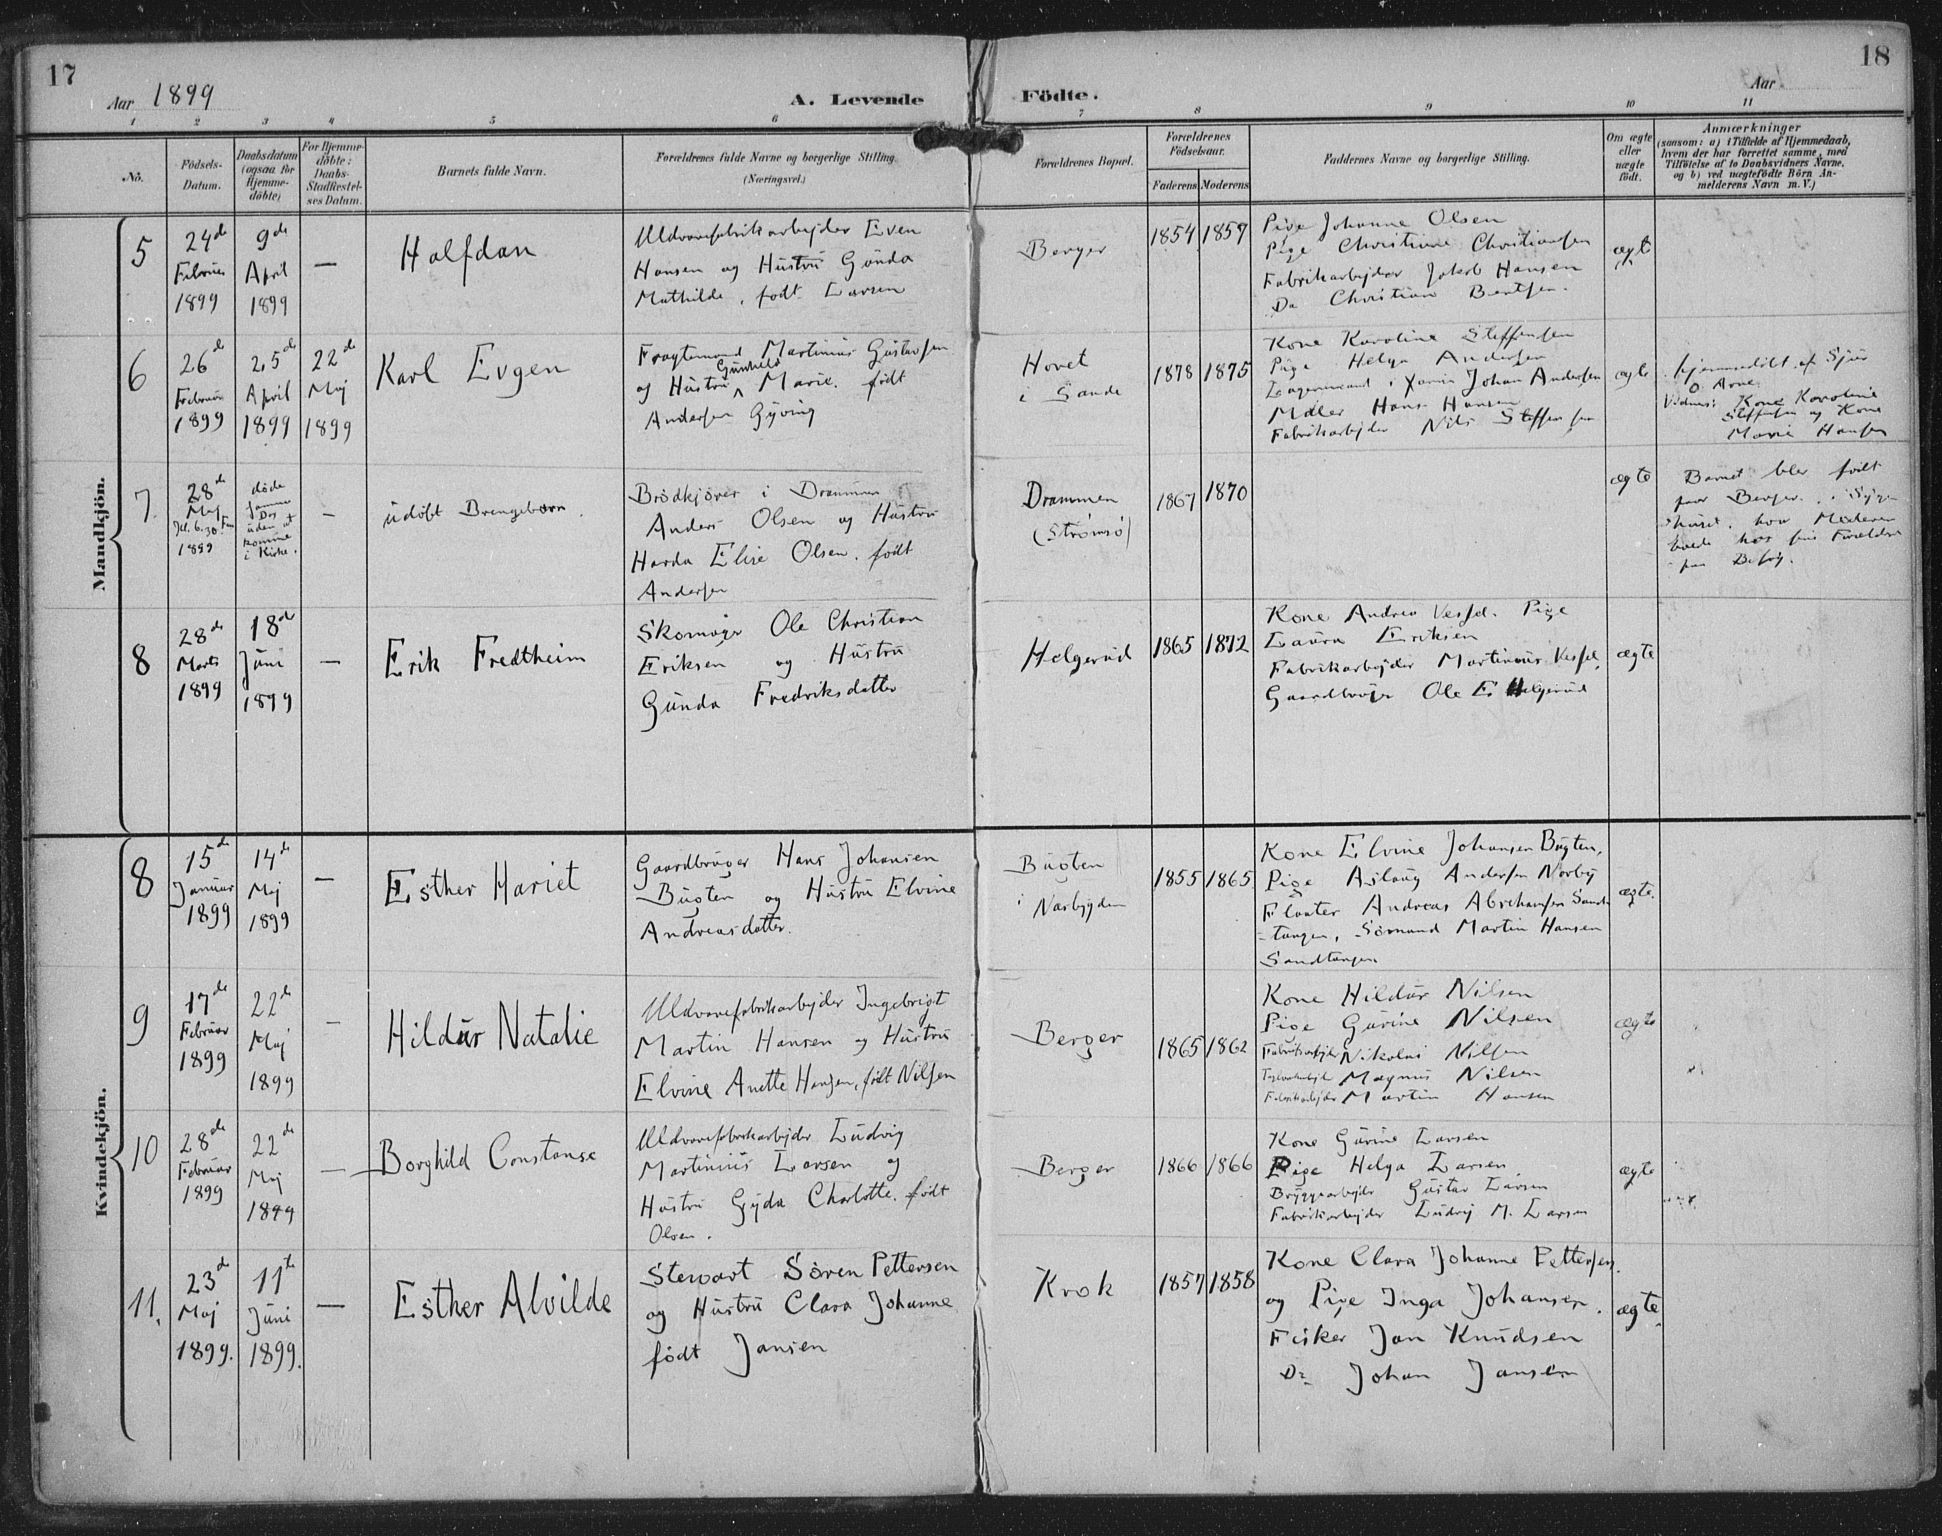 17
Aar 1899
A. Levende
Födte.
Aar
18
1 2 3 4 5 6 7 8 9 10 11
No.
Födsels-
Datum.
Daabsdatum
(ogsaa for
Hjemme-
döbte)
For Hjemme-
döbte:
Daabs-
Stadfæstel-
ses Datum.
Barnets fulde Navn.
Forældrenes fulde Navne og borgerlige Stilling.
(Næringsvei.)
Forældrenes Bopæl.
Forældrenes
Födselsaar.
Faderens Moderens
Faddernes Navne og borgerlige Stilling.
Om ægte
eller
uægte
födt.
Anmærkninger
(saasom: a) i Tilfælde af Hjemmedaab,
hvem der har forrettet samme, med
Tilföielse af to Daabsvidners Navne,
og b) ved uægtefödte Börn An-
melderens Navn m. V.)
Mandkjön.
5
24de
Februar
1899
9de
April
1899
—
Halfdan
Uldvarefabrikarbejder Even
Hansen og Hustru Gunda
Mathilde, født Larsen
Berger
1854 1857
Pige Johanne Olsen
Pige Christiane Christiansen
Fabrikarbejder Jakob Hansen
Do Christian Bentsen.
ægte
6
26de
Februar
1899
25de
April
1899
22de
Maj
1899
Karl Evgen
Fragtemand Martinius Gustavsen
og Hustru Gunhild Marie. født
Andersen Gyving
Hovet
i Sande
1878 1875
Kone Karoline Steffensen
Pige Helga Andersen
Lagermand i Johan Andersen
Møller Hans Hansen
Fabrikarbejder Nils Steffensen
ægte
hjemmedöbt af Sjur
O. Arne.
Vidner: Kone Karoline
Steffensen og Kone
Marie Hansen
7.
28de
Maj
Kl. 6.30 Fm
1899
døde
samme
Dag
uden at
komme
i Kirke.
—
udöbt Drengebarn.
Brödkjörer i Drammen
Anders Olsen og Hustru
Harda Elise Olsen. født
Andersen
Drammen
(Strømsø)
1867 1870
ægte
Barnet blev født
paa Berger. i
huset. hvor Moderen
havde hos sine Forældre
paa Besøg.
8
28de
Marts
1899
18de
Juni
1899
—
Erik Fredtheim
Skomager Ole Christian
Eriksen og Hustru
Gunda Fredriksdatter
Helgerud
1865 1872
Kone Andrea Vessel. Pige
Laura Eriksen
Fabrikarbejder Martinius Vessel.
Gaardbruger Ole E. Helgerud
ægte
Kvindekjön.
8
15de
Januar
1899
14de
Maj
1899
—
Esther Hariet
Gaardbruger Hans Johansen
Bugten og Hustru Elvine
Andreasdatter.
Bugten
i Nordbygden
1855 1865
Kone Elvine Johansen Bugten,
Pige Aslaug Andersen Nordby
Fløater Andreas Abrahamsen Sand-
-tangen, Sømand Martin Hansen
Sandtangen
ægte.
9
17de
Februar
1899
22de
Maj
1899
—
Hildur Natalie
Uldvarefabrikarbejder Ingebrigt
Martin Hansen og Hustru
Elvine Anette Hansen, født Nilsen
Berger
1865 1862
Kone Hildur Nilsen
Pige Gurine Nilsen
Fabrikarbejder Nikolai Nilsen
Teglværkarbejder Magnus Nilsen
Fabrikarbejder Martin Hansen
ægte
10
28de
Februar
1899
22de
Maj
1899
—
Borghild Constanse
Uldvarefabrikarbejder Ludvig
Martinius Larsen og
Hustru Gyda Charlotte. født
Olsen.
Berger
1866 1866
Kone Gurine Larsen
Pige Helga Larsen.
Bryggearbejder Gustav Larsen
Fabrikarbejder Ludvig M. Larsen
ægte
11.
23de
Maj
1899.
11te
Juni
1899.
—
Esther Alvilde
Stewart Sören Pettersen
og Hustru Clara Johanne
født Jansen
Krok
1857 1858
Kone Clara Johanne Pettersen.
og Pige Inga Johansen.
Fisker Jan Knudsen
Do Johan Jansen
ægte.